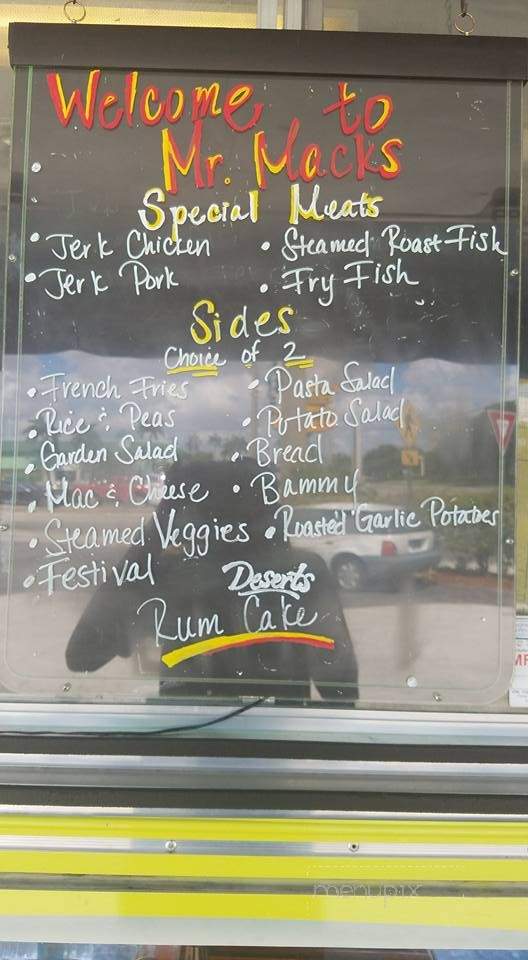 Welcome to
Mr. Macks
Special Meats
• Jerk Chicken
• Jerk Pork
• Steamed Roast Fish
• Fry Fish
Sides
Choice of 2
• French Fries
• Rice & Peas
• Garden Salad
• Mac & Cheese
• Steamed Veggies
• Festival
• Pasta Salad
• Potato Salad
• Bread
• Bammy
• Roasted Garlic Potatoes
Deserts
Rum Cake
menupix